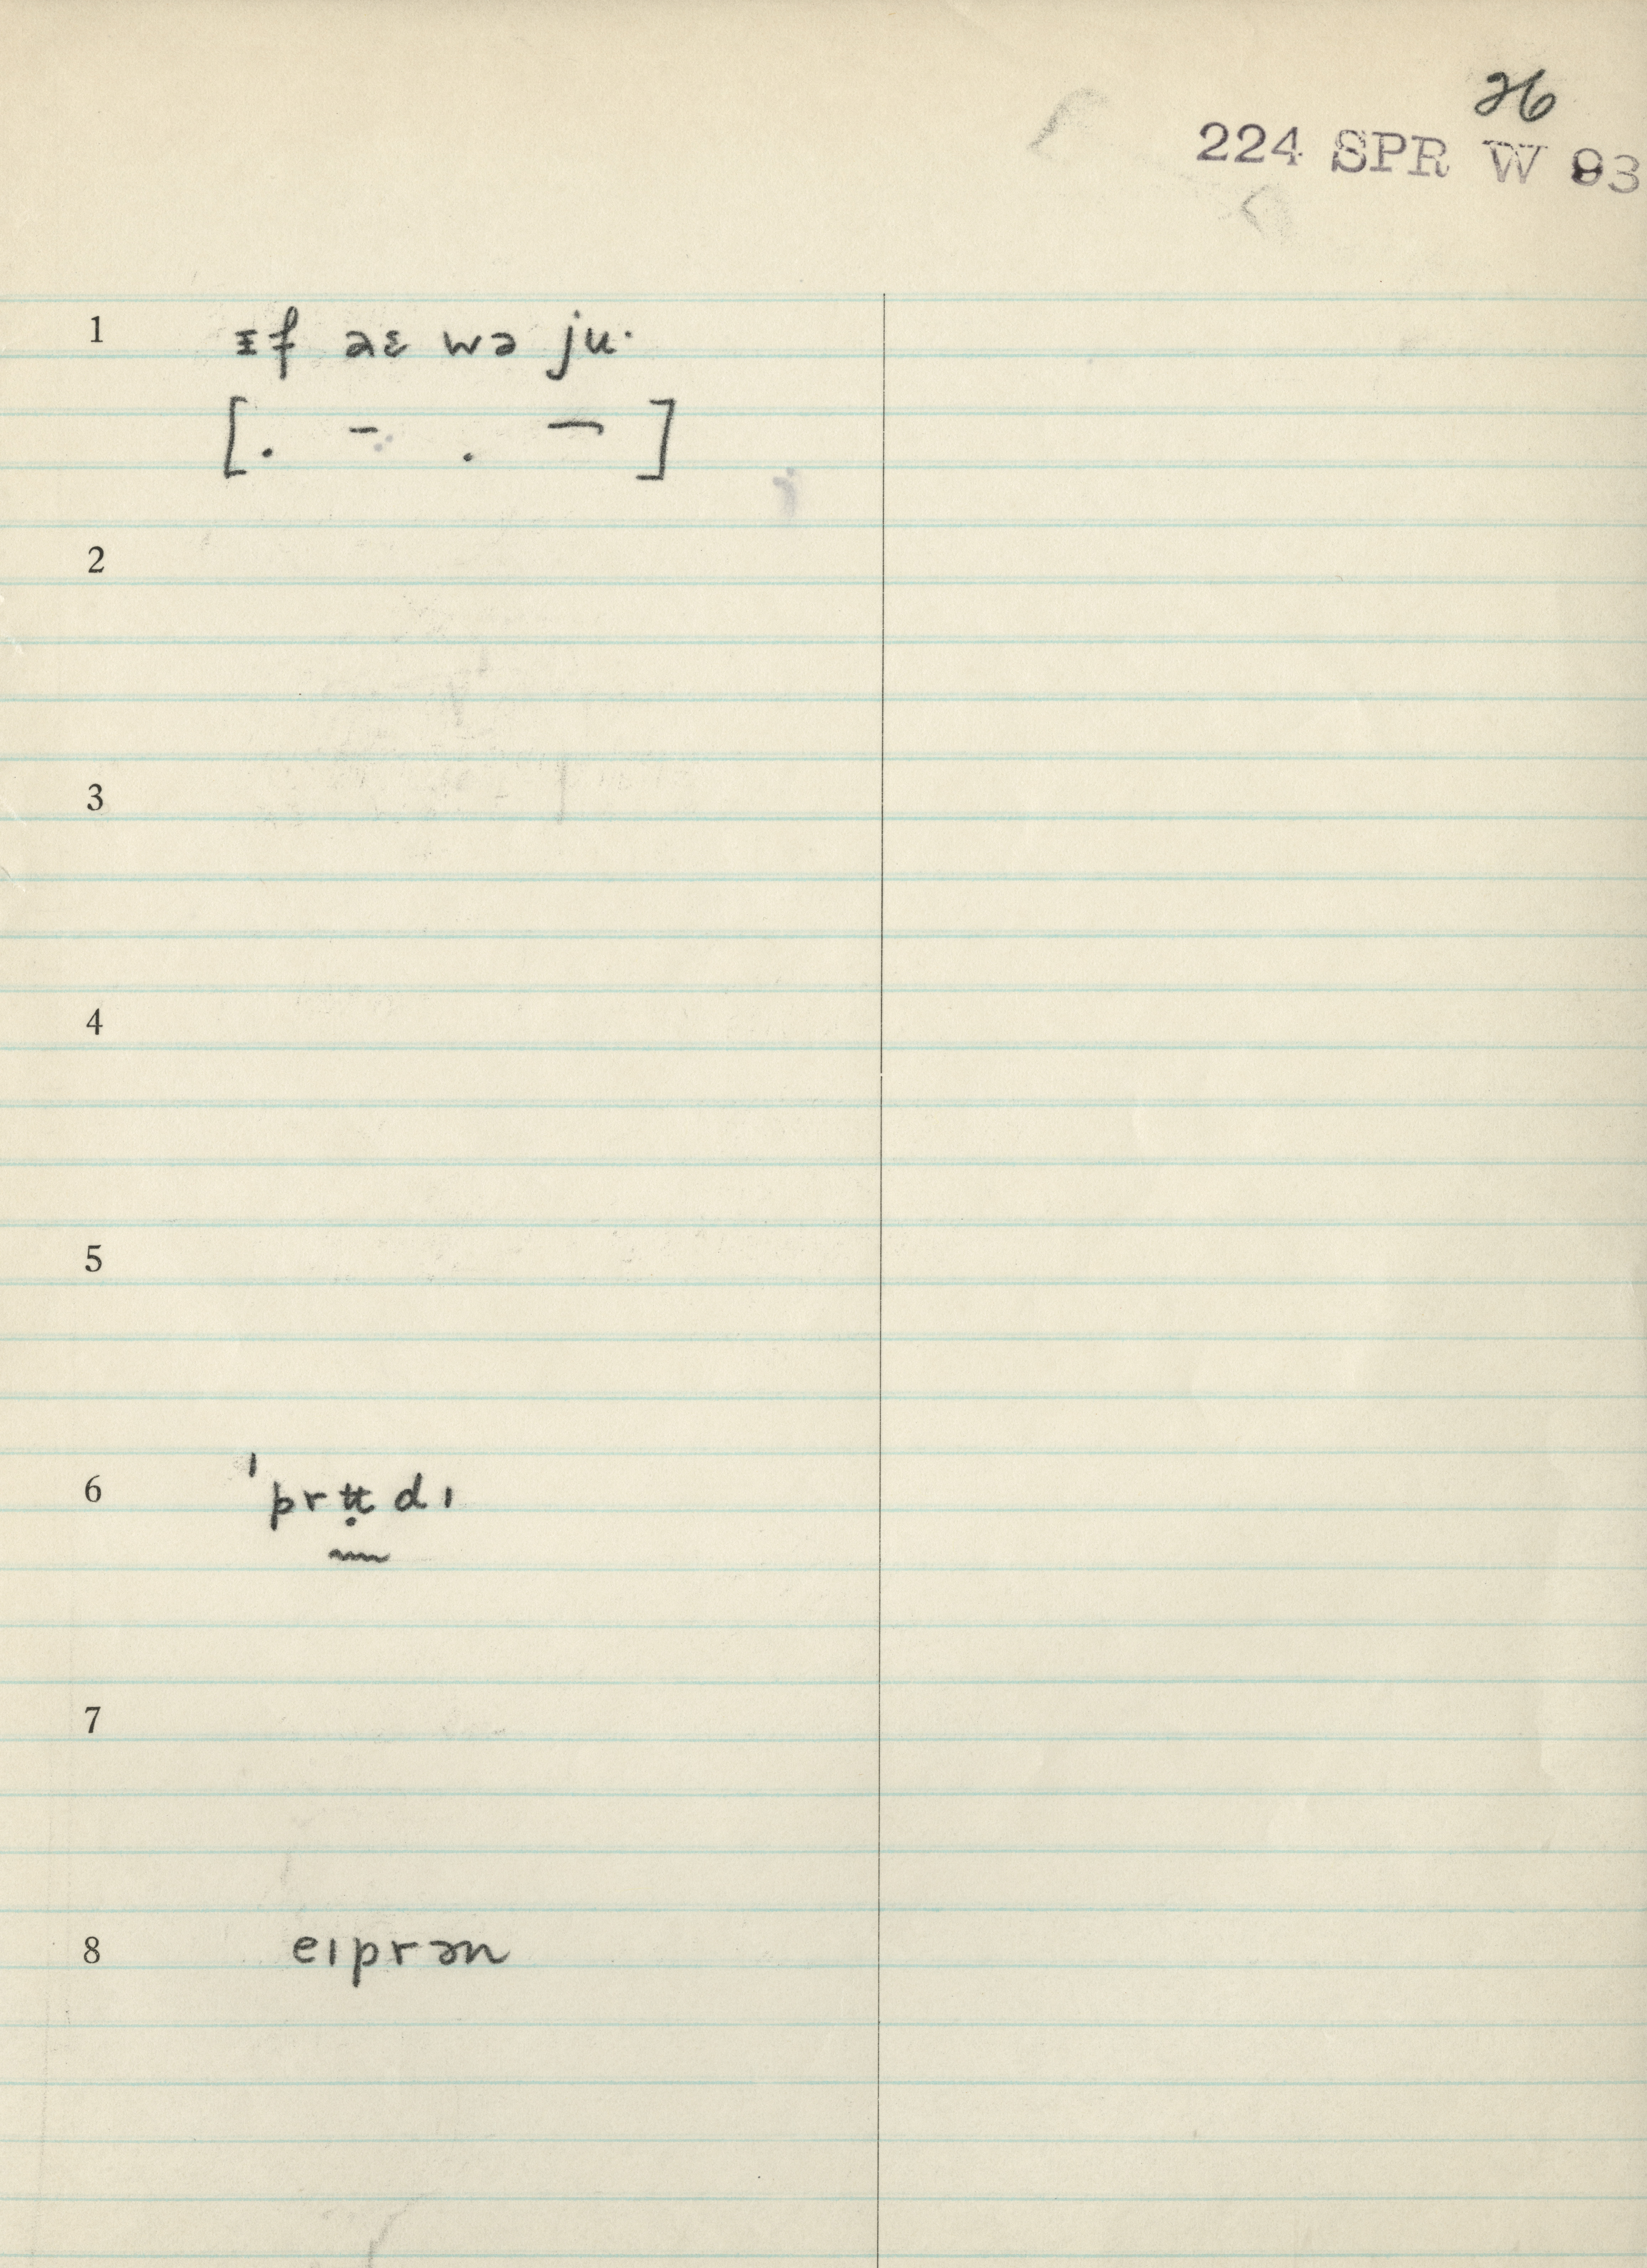 26
224 SPR W 93
1 ᵻf aɛ wə ju·
[. – . ¯ ]
2
3
4
5
6 ˈprʉ̣dɪ
7
8 eɪprən